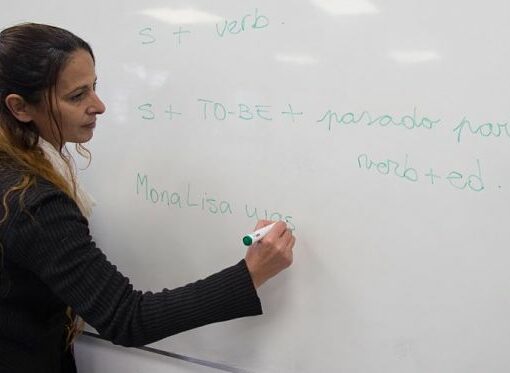 S + verb.
S + TO-BE + pasado par
verb + ed.
MonaLisa was